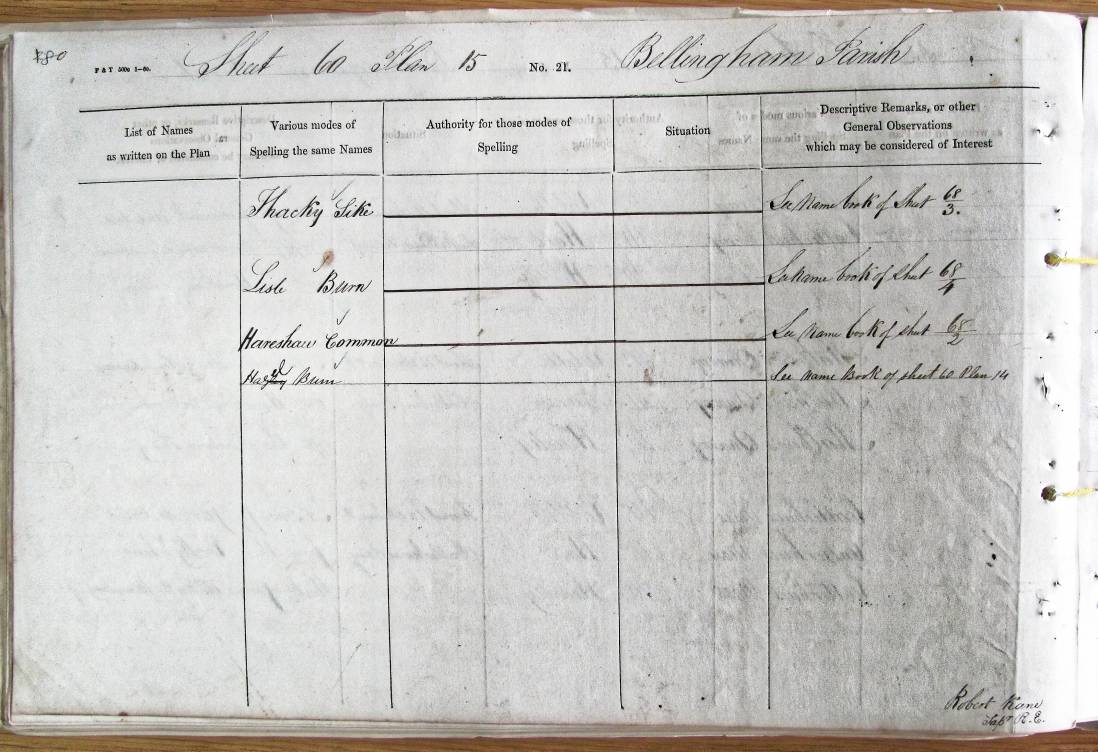 180
F & T 500s 1-60.
Sheet 60 Plan 15 No. 21. Bellingham Parish
List of Names
as written on the Plan
Various modes of
Spelling the same Names
Authority for those modes of
Spelling
Situation
Descriptive Remarks, or other
General Observations
which may be considered of Interest
Thacky Sike See Name book of Sheet 68/3.
Lisle Burn See Name book of Sheet 68/4
Hareshaw Common See Name book of Sheet 68/2
Burn See Name Book of sheet 60 Plan 14
Robert Kane
Sapr R.E.